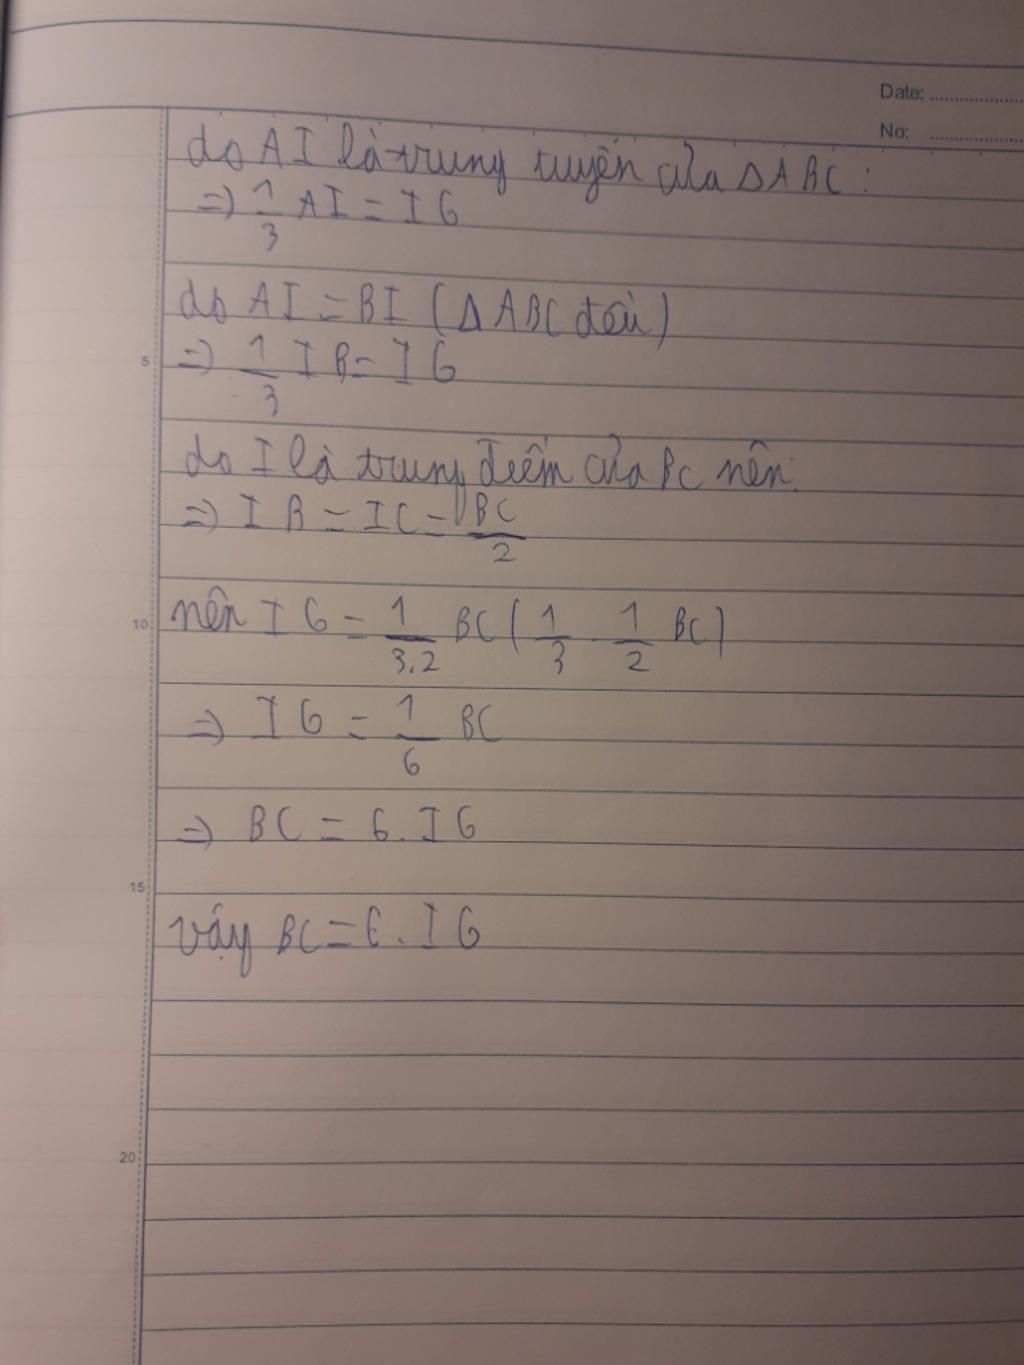 Date: ........................
No: ........................
do AI là trung tuyến của ΔABC:
=> 1/3 AI = IG
do AI = BI (ΔABC đều)
5
=> 1/3 IB = IG
do I là trung điểm của BC nên:
=> IB = IC = BC/2
10
nên IG = 1/3.2 BC (1/3 . 1/2 BC)
=> IG = 1/6 BC
=> BC = 6.IG
15
vậy BC = 6.IG
20